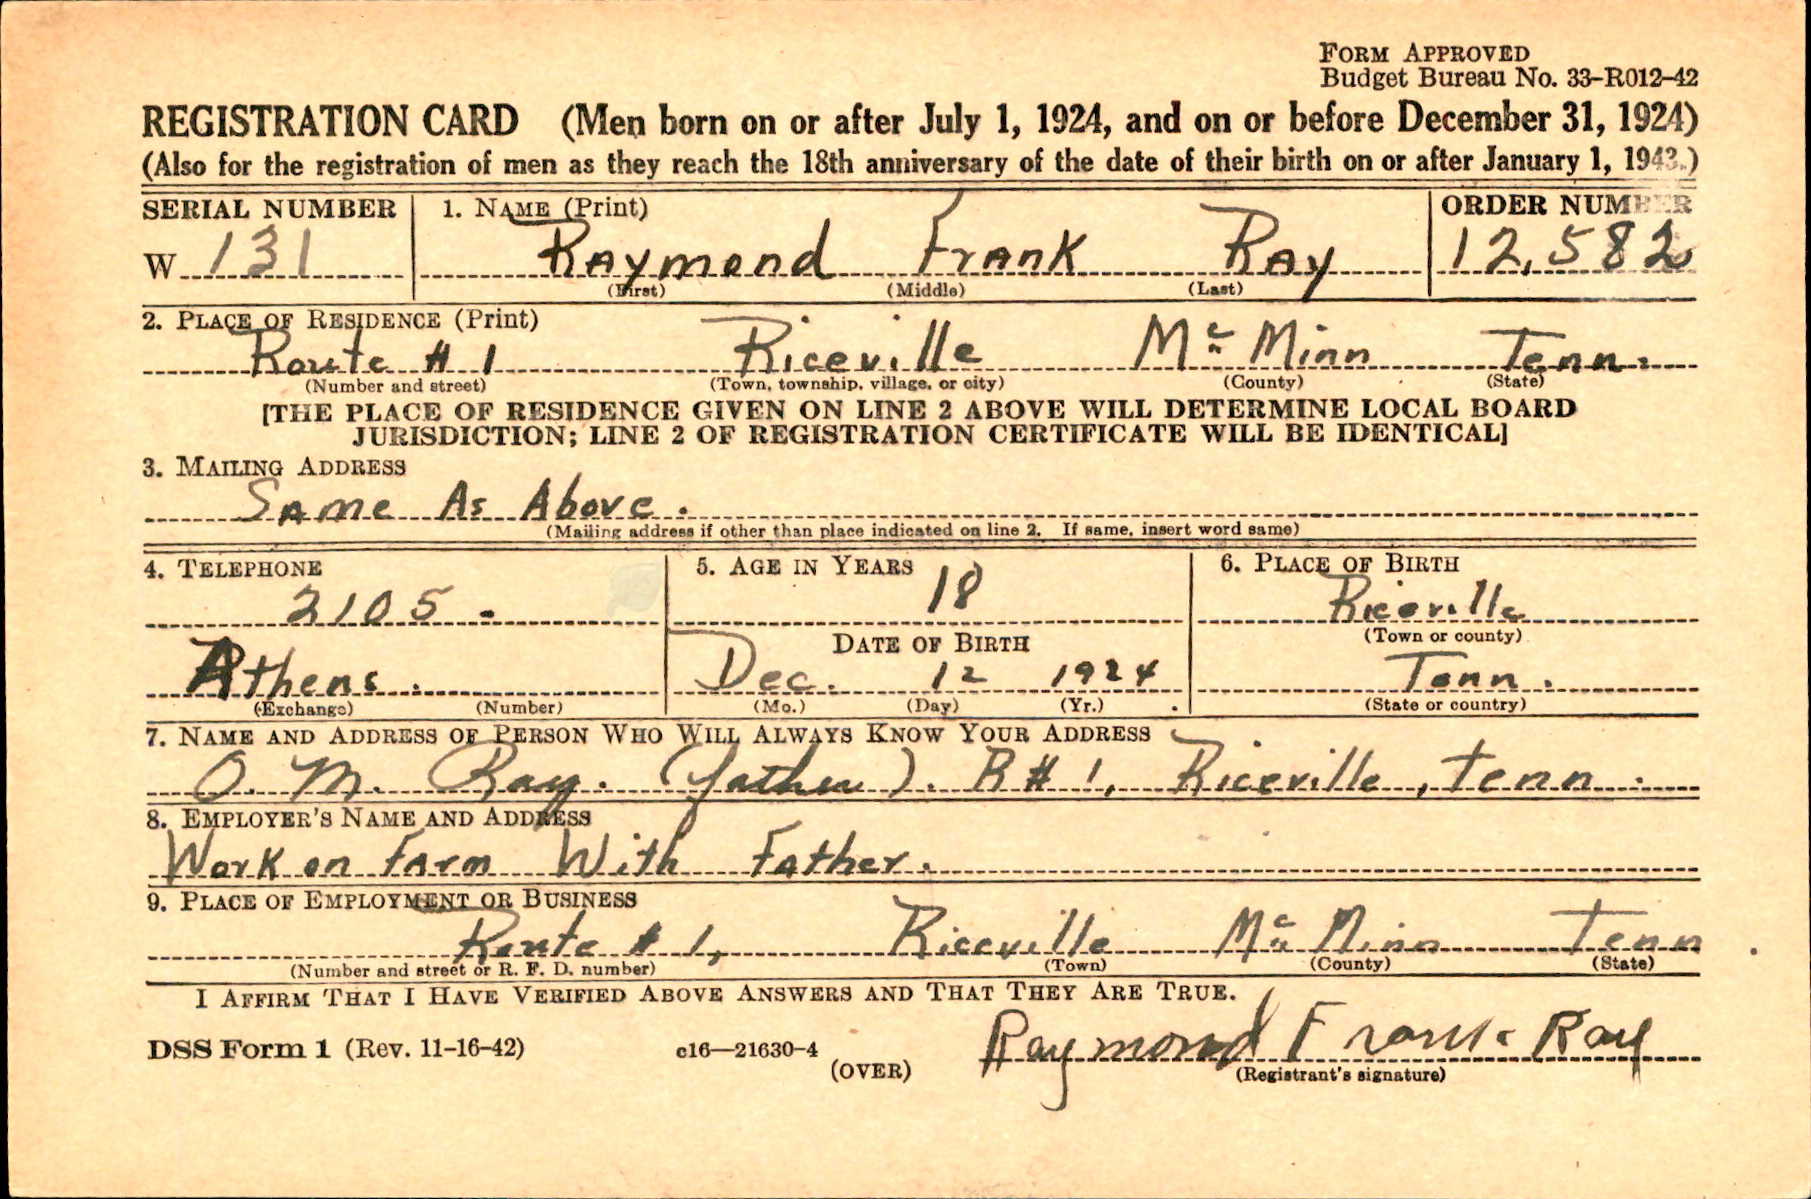 FORM APPROVED
Budget Bureau No. 33-R012-42
REGISTRATION CARD (Men born on or after July 1, 1924, and on or before December 31, 1924)
(Also for the registration of men as they reach the 18th anniversary of the date of their birth on or after January 1, 1943.)
SERIAL NUMBER 1. NAME (Print) ORDER NUMBER
W 131 Raymond Frank Ray 12,582
(First) (Middle) (Last)
2. PLACE OF RESIDENCE (Print)
Route # 1 Riceville Mc Minn Tenn.
(Number and street) (Town, township, village, or city) (County) (State)
[THE PLACE OF RESIDENCE GIVEN ON LINE 2 ABOVE WILL DETERMINE LOCAL BOARD
JURISDICTION; LINE 2 OF REGISTRATION CERTIFICATE WILL BE IDENTICAL]
3. MAILING ADDRESS
Same As Above.
(Mailing address if other than place indicated on line 2. If same, insert word same)
4. TELEPHONE 5. AGE IN YEARS 6. PLACE OF BIRTH
2105 - 18 Riceville
DATE OF BIRTH (Town or county)
Athens. Dec. 12 1924 Tenn.
(Exchange) (Number) (Mo.) (Day) (Yr.) (State or country)
7. NAME AND ADDRESS OF PERSON WHO WILL ALWAYS KNOW YOUR ADDRESS
O. M. Ray. (father). R # 1, Riceville, Tenn.
8. EMPLOYER'S NAME AND ADDRESS
Work on Farm With Father.
9. PLACE OF EMPLOYMENT OR BUSINESS
Route # 1, Riceville Mc Minn Tenn.
(Number and street or R. F. D. number) (Town) (County) (State)
I AFFIRM THAT I HAVE VERIFIED ABOVE ANSWERS AND THAT THEY ARE TRUE.
DSS Form 1 (Rev. 11-16-42) c16—21630-4 (OVER) Raymond Frank Ray
(Registrant's signature)